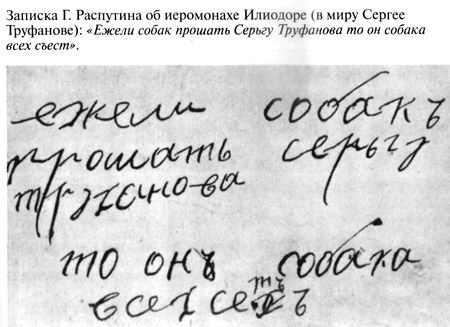 Записка Г. Распутина об иеромонахе Илиодоре (в миру Сергее
Труфанове): «Ежели собак прошать Серьгу Труфанова то он собака
всех съест».
ежели собакъ
прошать серьгу
трханова
то онъ собака
всех сестъ